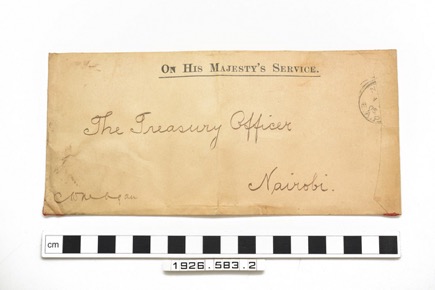 On His Majesty's Service.
The Treasury Officer
Nairobi.
cm
1926.583.2